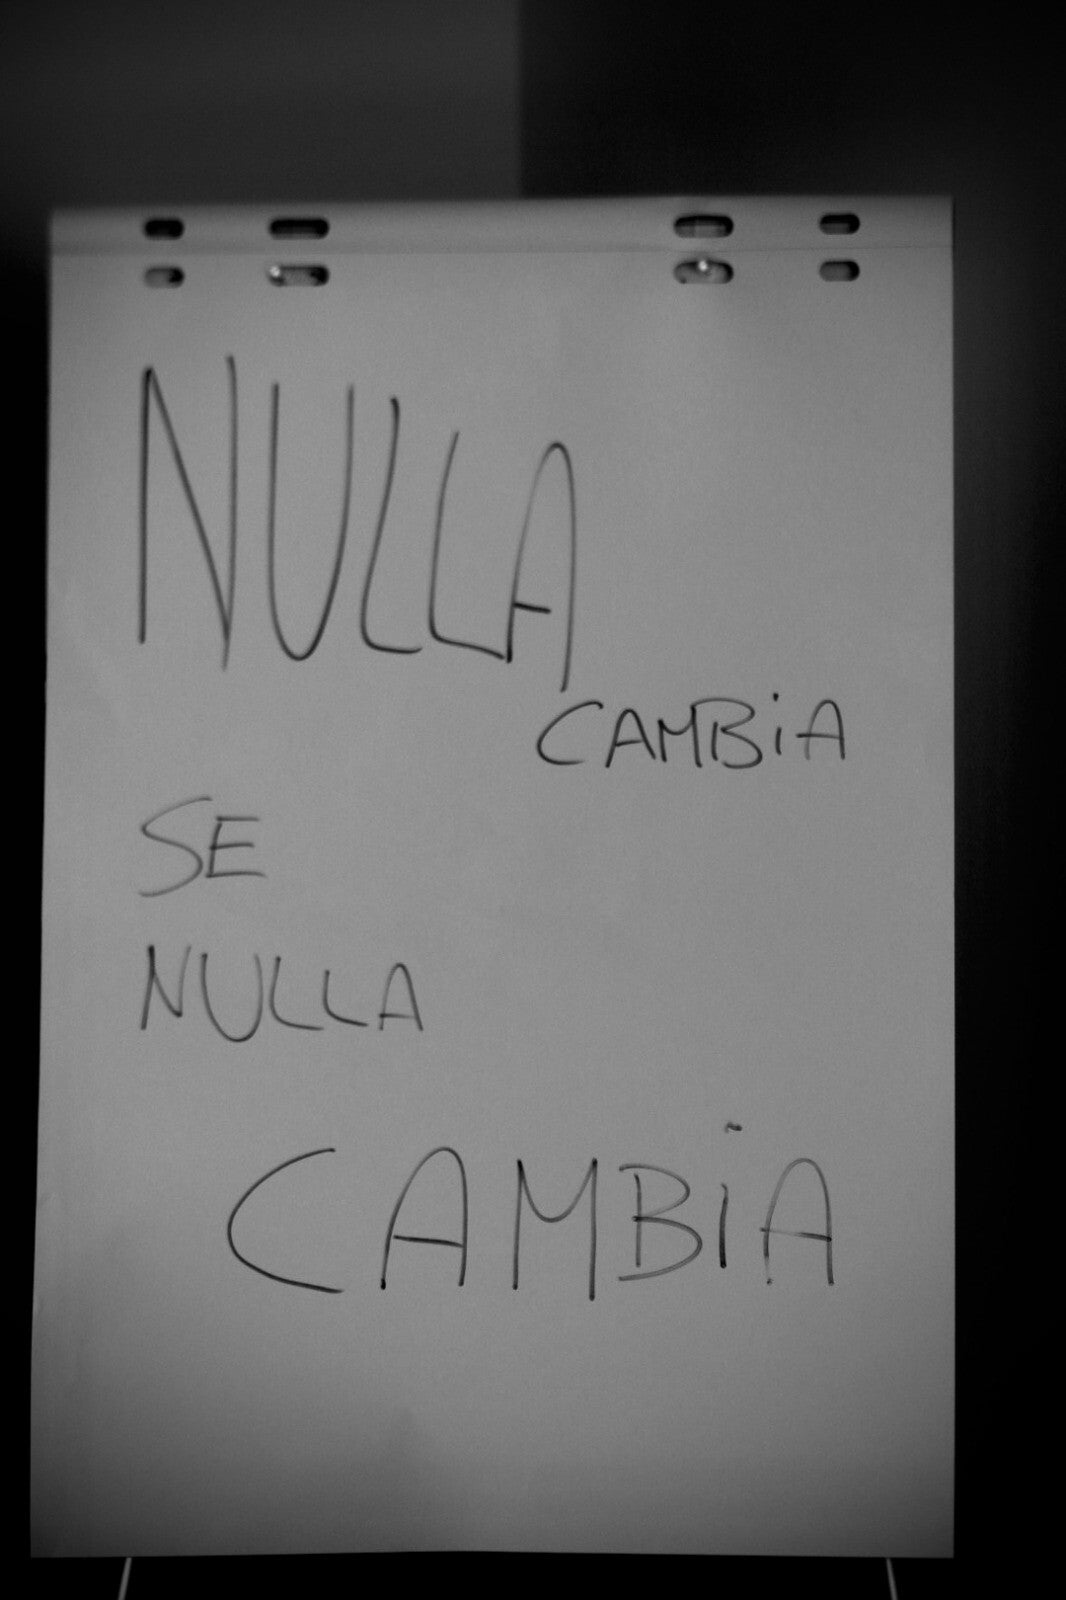 NULLA
CAMBiA
SE
NULLA
CAMBiA